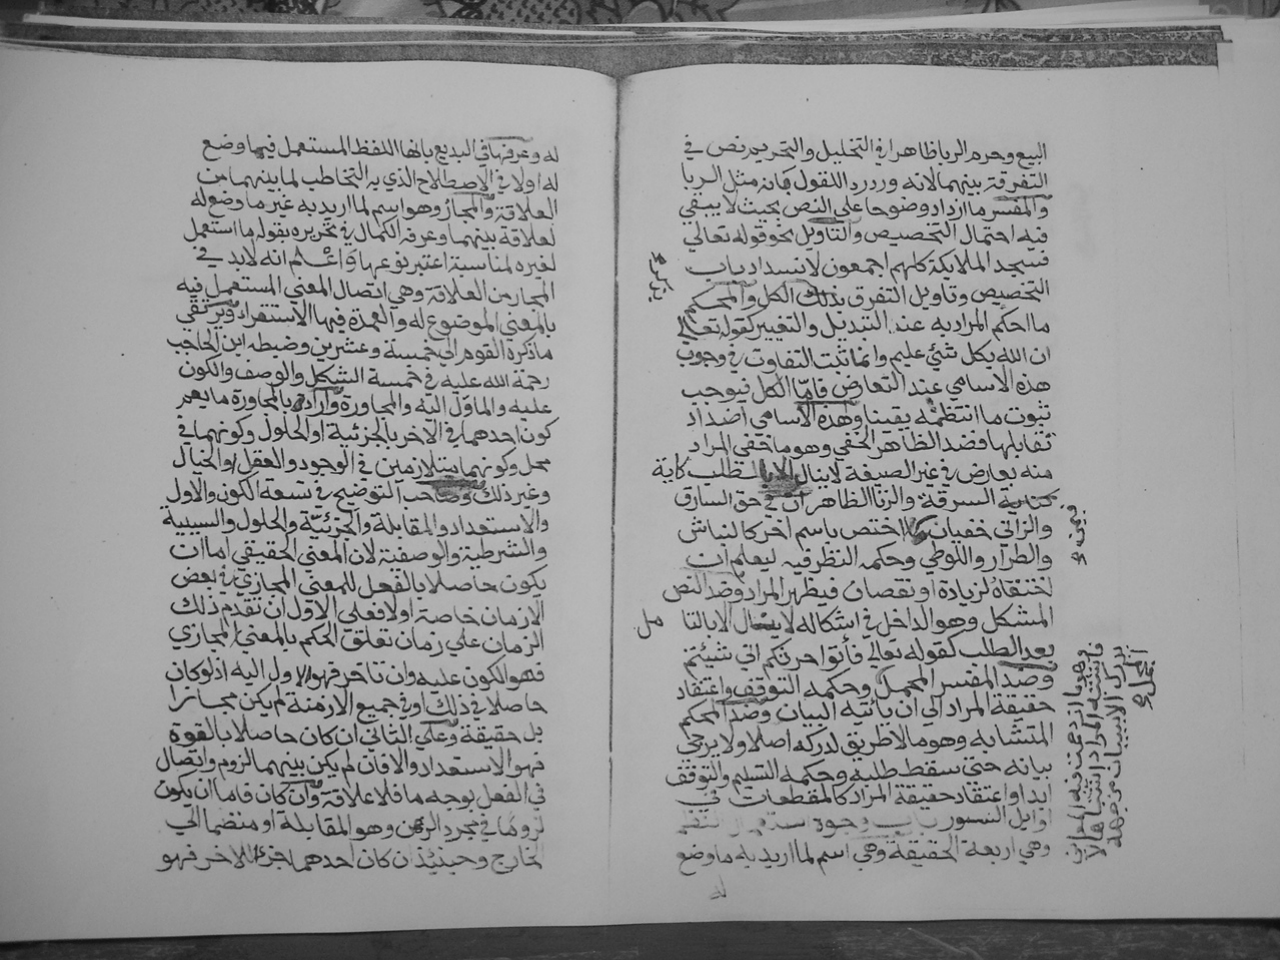 البيع وحرم الربا ظاهرا في التحليل والتحريم نص في
التفرقة بينهما لانه ورد رد القول بانه مثل الربا
والمفسر ما ازداد وضوحا على النص بحيث لا يبقي
فيه احتمال التخصيص والتاويل نحو قوله تعالي
فسجد الملايكة كلهم اجمعون لانسداد باب
التخصيص وتاويل التفرق بذلك الكل والمحكم
ما احكم المراد به عند التبديل والتغيير كقوله تعالي
ان الله بكل شئي عليم وانما ثبت التفاوت في وجوب
هذه الاسامي عند التعارض فامّا الكل فيوجب
ثبوت ما انتظمه يقينا وهذه الاسامي اضداد
تقابلها فضد الظاهر الخفي وهو ما خفي المراد
منه بعارض في غير الصيغة لا ينال الا بالطلب كاية
السرقة والزنا الظاهر ان في حق السارق
والزاني خفيان اختص باسم اخر كالنباش
والطرار واللوطي وحكمه النظر فيه ليعلم ان
اختفاه لزيادة او نقصان فيظهر المراد وضد النص
المشكل وهو الداخل في اشكاله لا ينال الا بالتا
مل
بعد الطلب كقوله تعالي فأتوا حرثكم اني شيئتم
وضد المفسر المجمل وحكمه التوقف واعتقاد
حقيقة المراد الي ان ياتيه البيان وضد المحكم
المتشابه وهو ما لا طريق لدركه اصلا ولا يرجي
بيانه حتي سقط طلبه وحكمه التسليم والتوقف
ابدا واعتقاد حقيقة المراد كالمقطعات في
اوايل السور باب وجوه استعمال النظم
وهي اربعة الحقيقة وهي اسم لما اريد به ما وضع
له
وهو ما ازدحمت فيه المعاني
فاشتبه المراد اشتباها لا
يدرك الا ببيان من جهة
المجمل
له وعرفها في البديع بانها اللفظ المستعمل فيما وضع
له اولا في الاصطلاح الذي به التخاطب لما بينهما من
العلاقة والمجاز وهو اسم لما اريد به غير ما وضع له
لعلاقة بينهما وعرفه الكمال في تحريره بقوله ما استعمل
لغيره لمناسبة اعتبر نوعها واعلم انه لا بد في
المجاز من العلاقة وهي اتصال المعني المستعمل فيه
بالمعني الموضوع له والعمدة فيها الاستقراء ويرتقي
ما ذكره القوم الي خمسة وعشرين وضبطه ابن الحاجب
رحمة الله عليه في خمسة الشكل والوصف والكون
عليه والماوّل اليه والمجاورة واراد بالمجاورة ما يعم
كون احدهما في الاخر بالجزئية او الحلول وكونهما في
محل وكونهما متلازمين في الوجود والعقل او الخيال
وغير ذلك وصاحب التوضيح في تسعة الكون والاول
والاستعداد والمقابلة والجزئيّة والحلول والسببية
والشرطية والوصفية لان المعني الحقيقي اما ان
يكون حاصلا بالفعل للمعني المجازي في بعض
الازمان خاصة اولا فعلي الاول ان تقدم ذلك
الزمان علي زمان تعلق الحكم بالمعني المجازي
فهو الكون عليه وان تاخر فهو الاول اليه اذ لو كان
حاصلا في ذلك او في جميع الازمنة لم يكن مجازا
بل حقيقة وعلي الثاني ان كان حاصلا بالقوة
فهو الاستعداد والا فان لم يكن بينهما لزوم واتصال
في الفعل بوجه ما فلا علاقة وان كان فاما ان يكون
لزوما في مجرد الذهن وهو المقابلة او منضما الي
الخارج وحينئذ ان كان احدهما جزءا للاخر فهو